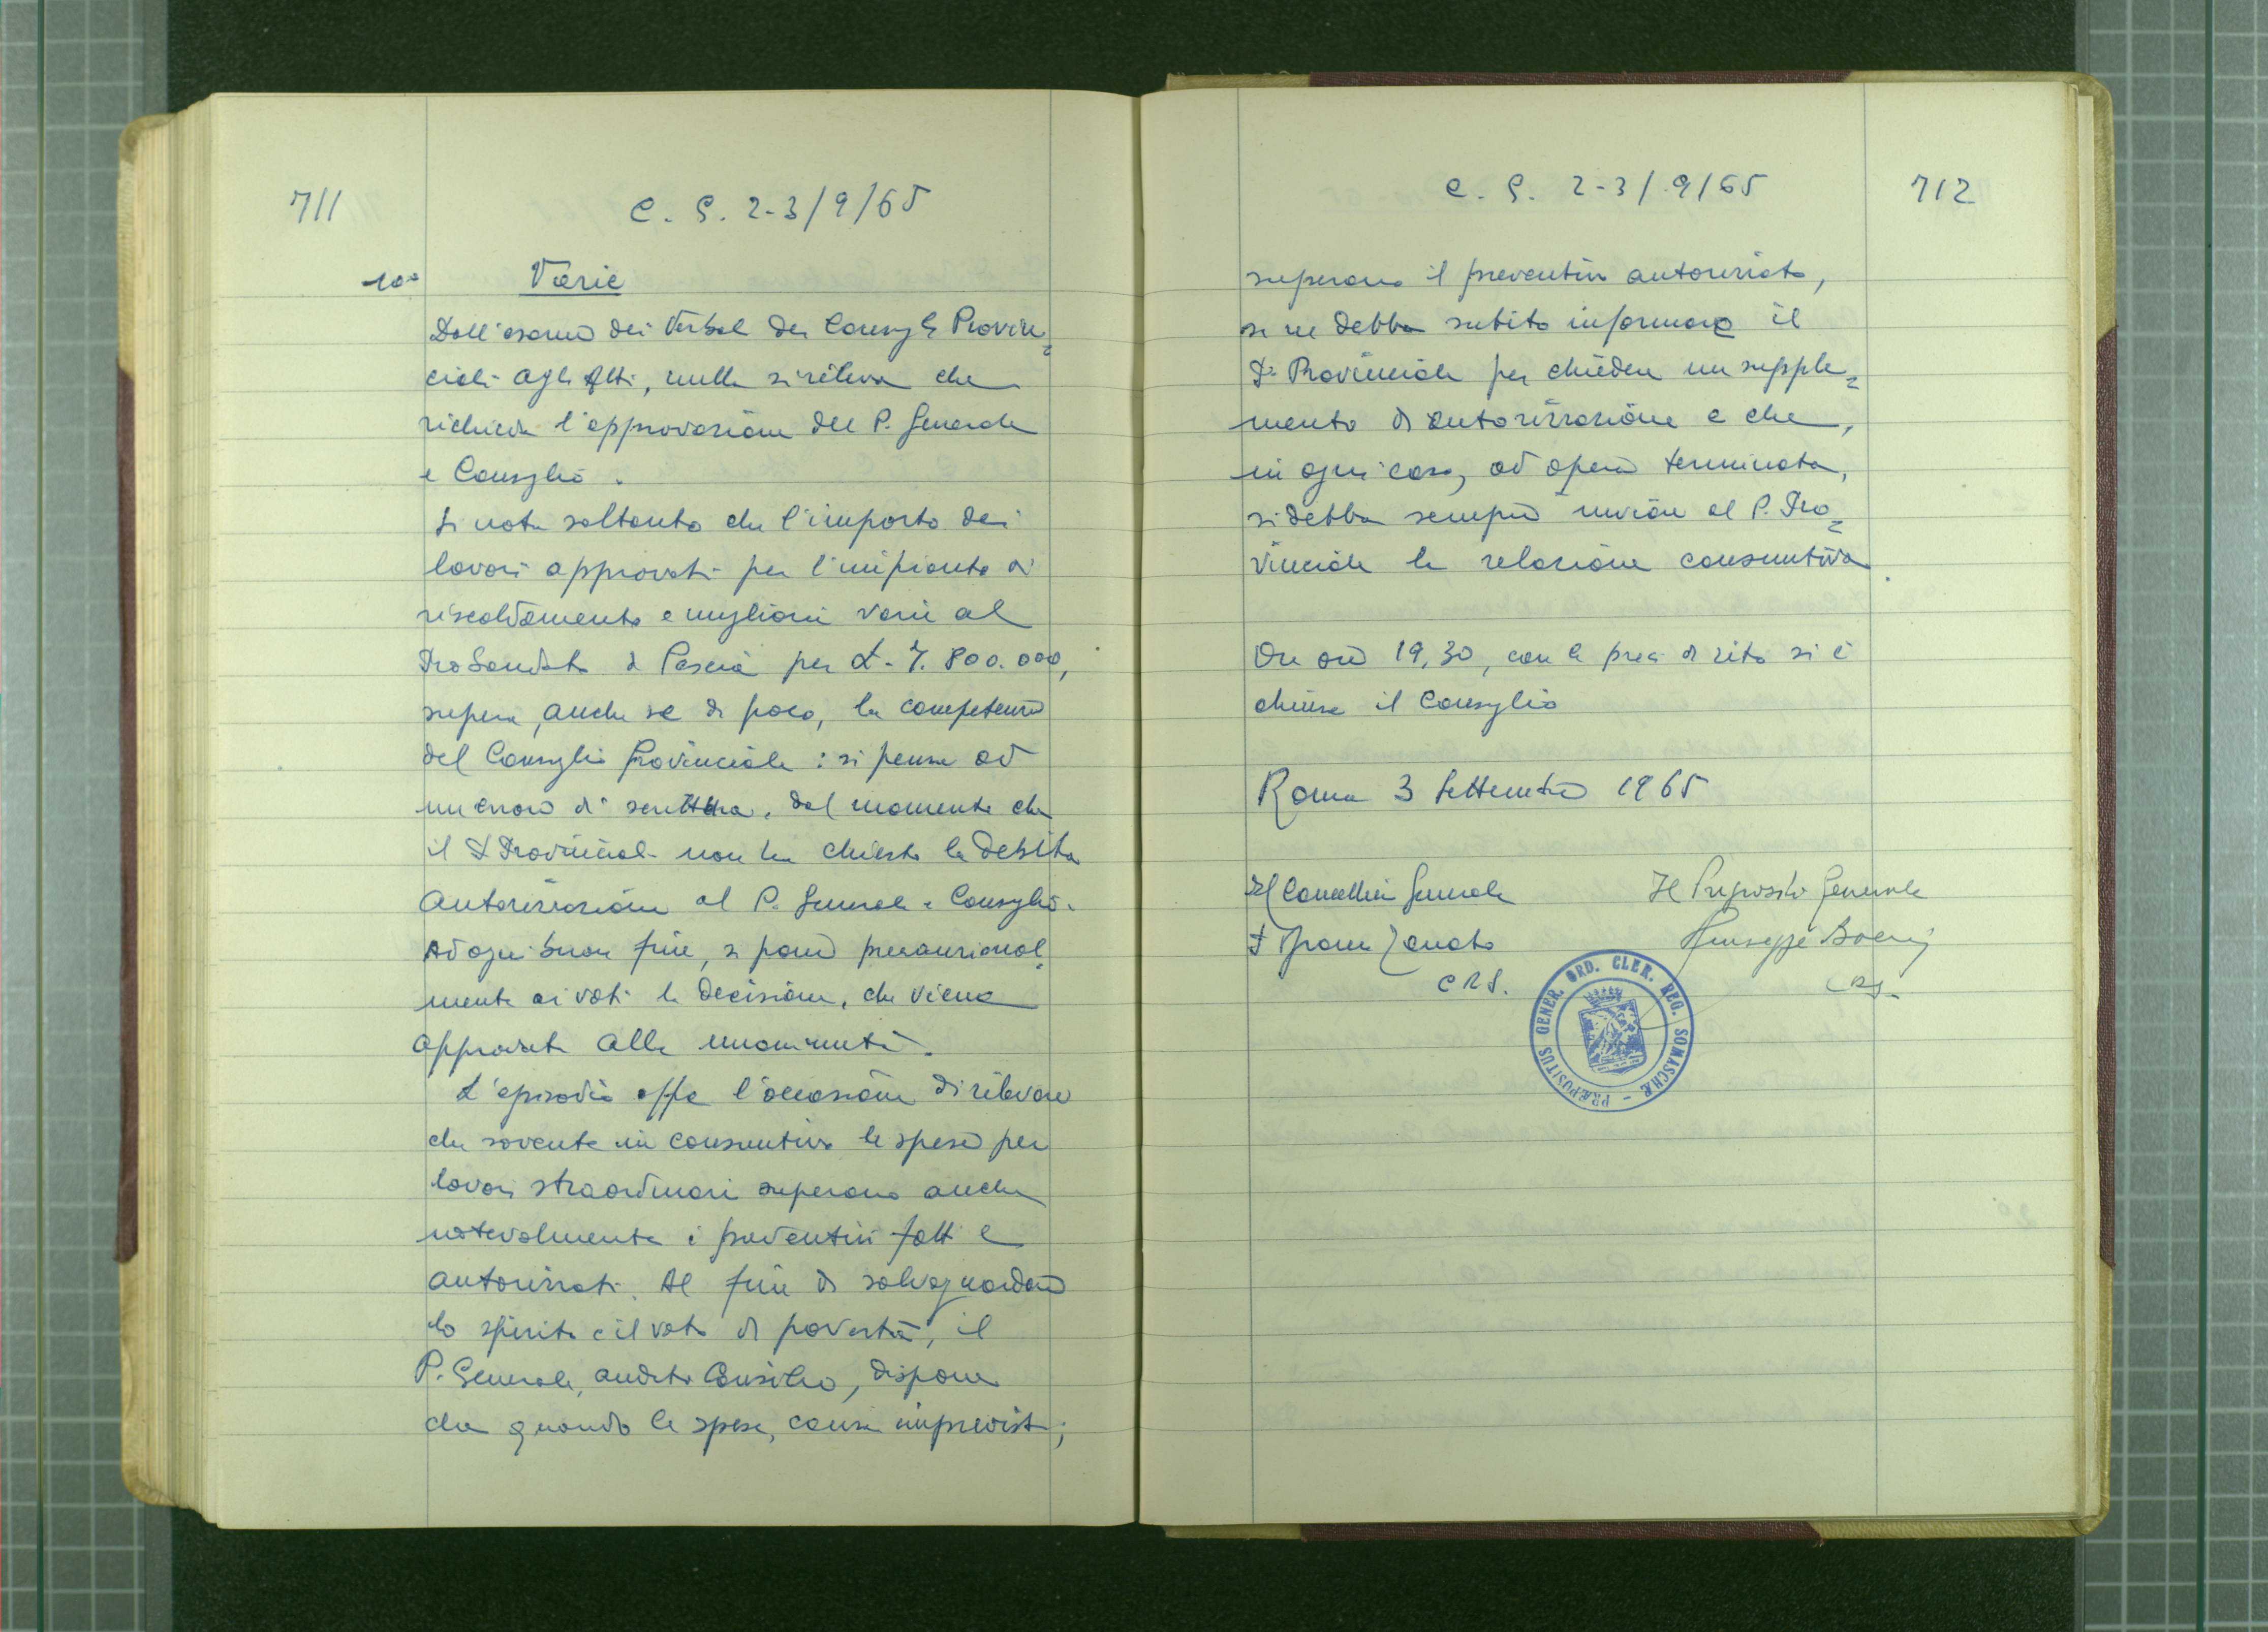 711
C. G. 2-3/9/65
10° Varie
Dall'esame dei Verbali dei Consigli Provin=
ciali agli Atti, nulla si rileva che
richieda l'approvazione del P. Generale
e Consiglio.
Si nota soltanto che l'importo dei
lavori approvati per l'impianto di
riscaldamento e migliorie varie al
Probandato di Pescia per L. 7.800.000,
supera, anche se di poco, la competenza
del Consiglio Provinciale: si pensa ad
un errore di scrittura, dal momento che
il P. Provinciale non ha chiesto la debita
Autorizzazione al P. Generale e Consiglio.
Ad ogni buon fine, si pone precauzional=
mente ai voti la decisione, che viene
approvata alla unanimità.
L'episodio offre l'occasione di rilevare
che sovente in consuntivo le spese per
lavori straordinari superano anche
notevolmente i preventivi fatti e
autorizzati. Al fine di salvaguardare
lo spirito e il voto di povertà, il
P. Generale, audito Consilio, dispone
che quando le spese, causa imprevisti,
C. G. 2-3/9/65
712
superano il preventivo autorizzato,
se ne debba subito informare il
P. Provinciale per chiedere un supple=
mento di autorizzazione e che,
in ogni caso, ad opera terminata,
si debba sempre inviare al P. Pro=
vinciale la relazione consuntiva.
Ore 19,30, con le preci di rito si è
chiuso il Consiglio
Roma 3 Settembre 1965
Il Cancelliere Generale
Il Preposito Generale
P. Zanatta
Giuseppe Boeris
CRS.
CRS.
PRÆPOSITUS GENER. ORD. CLER. REG. SOMASCHÆ